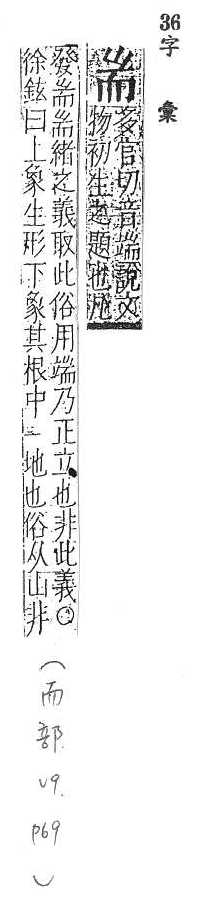 36
字彙
耑
多官切音端說文
物初生之題也凡
發耑耑緒之義取此俗用端乃正立也非此義○
徐鉉曰上象生形下象其根中一地也俗从山非
(而部. v9. p69)